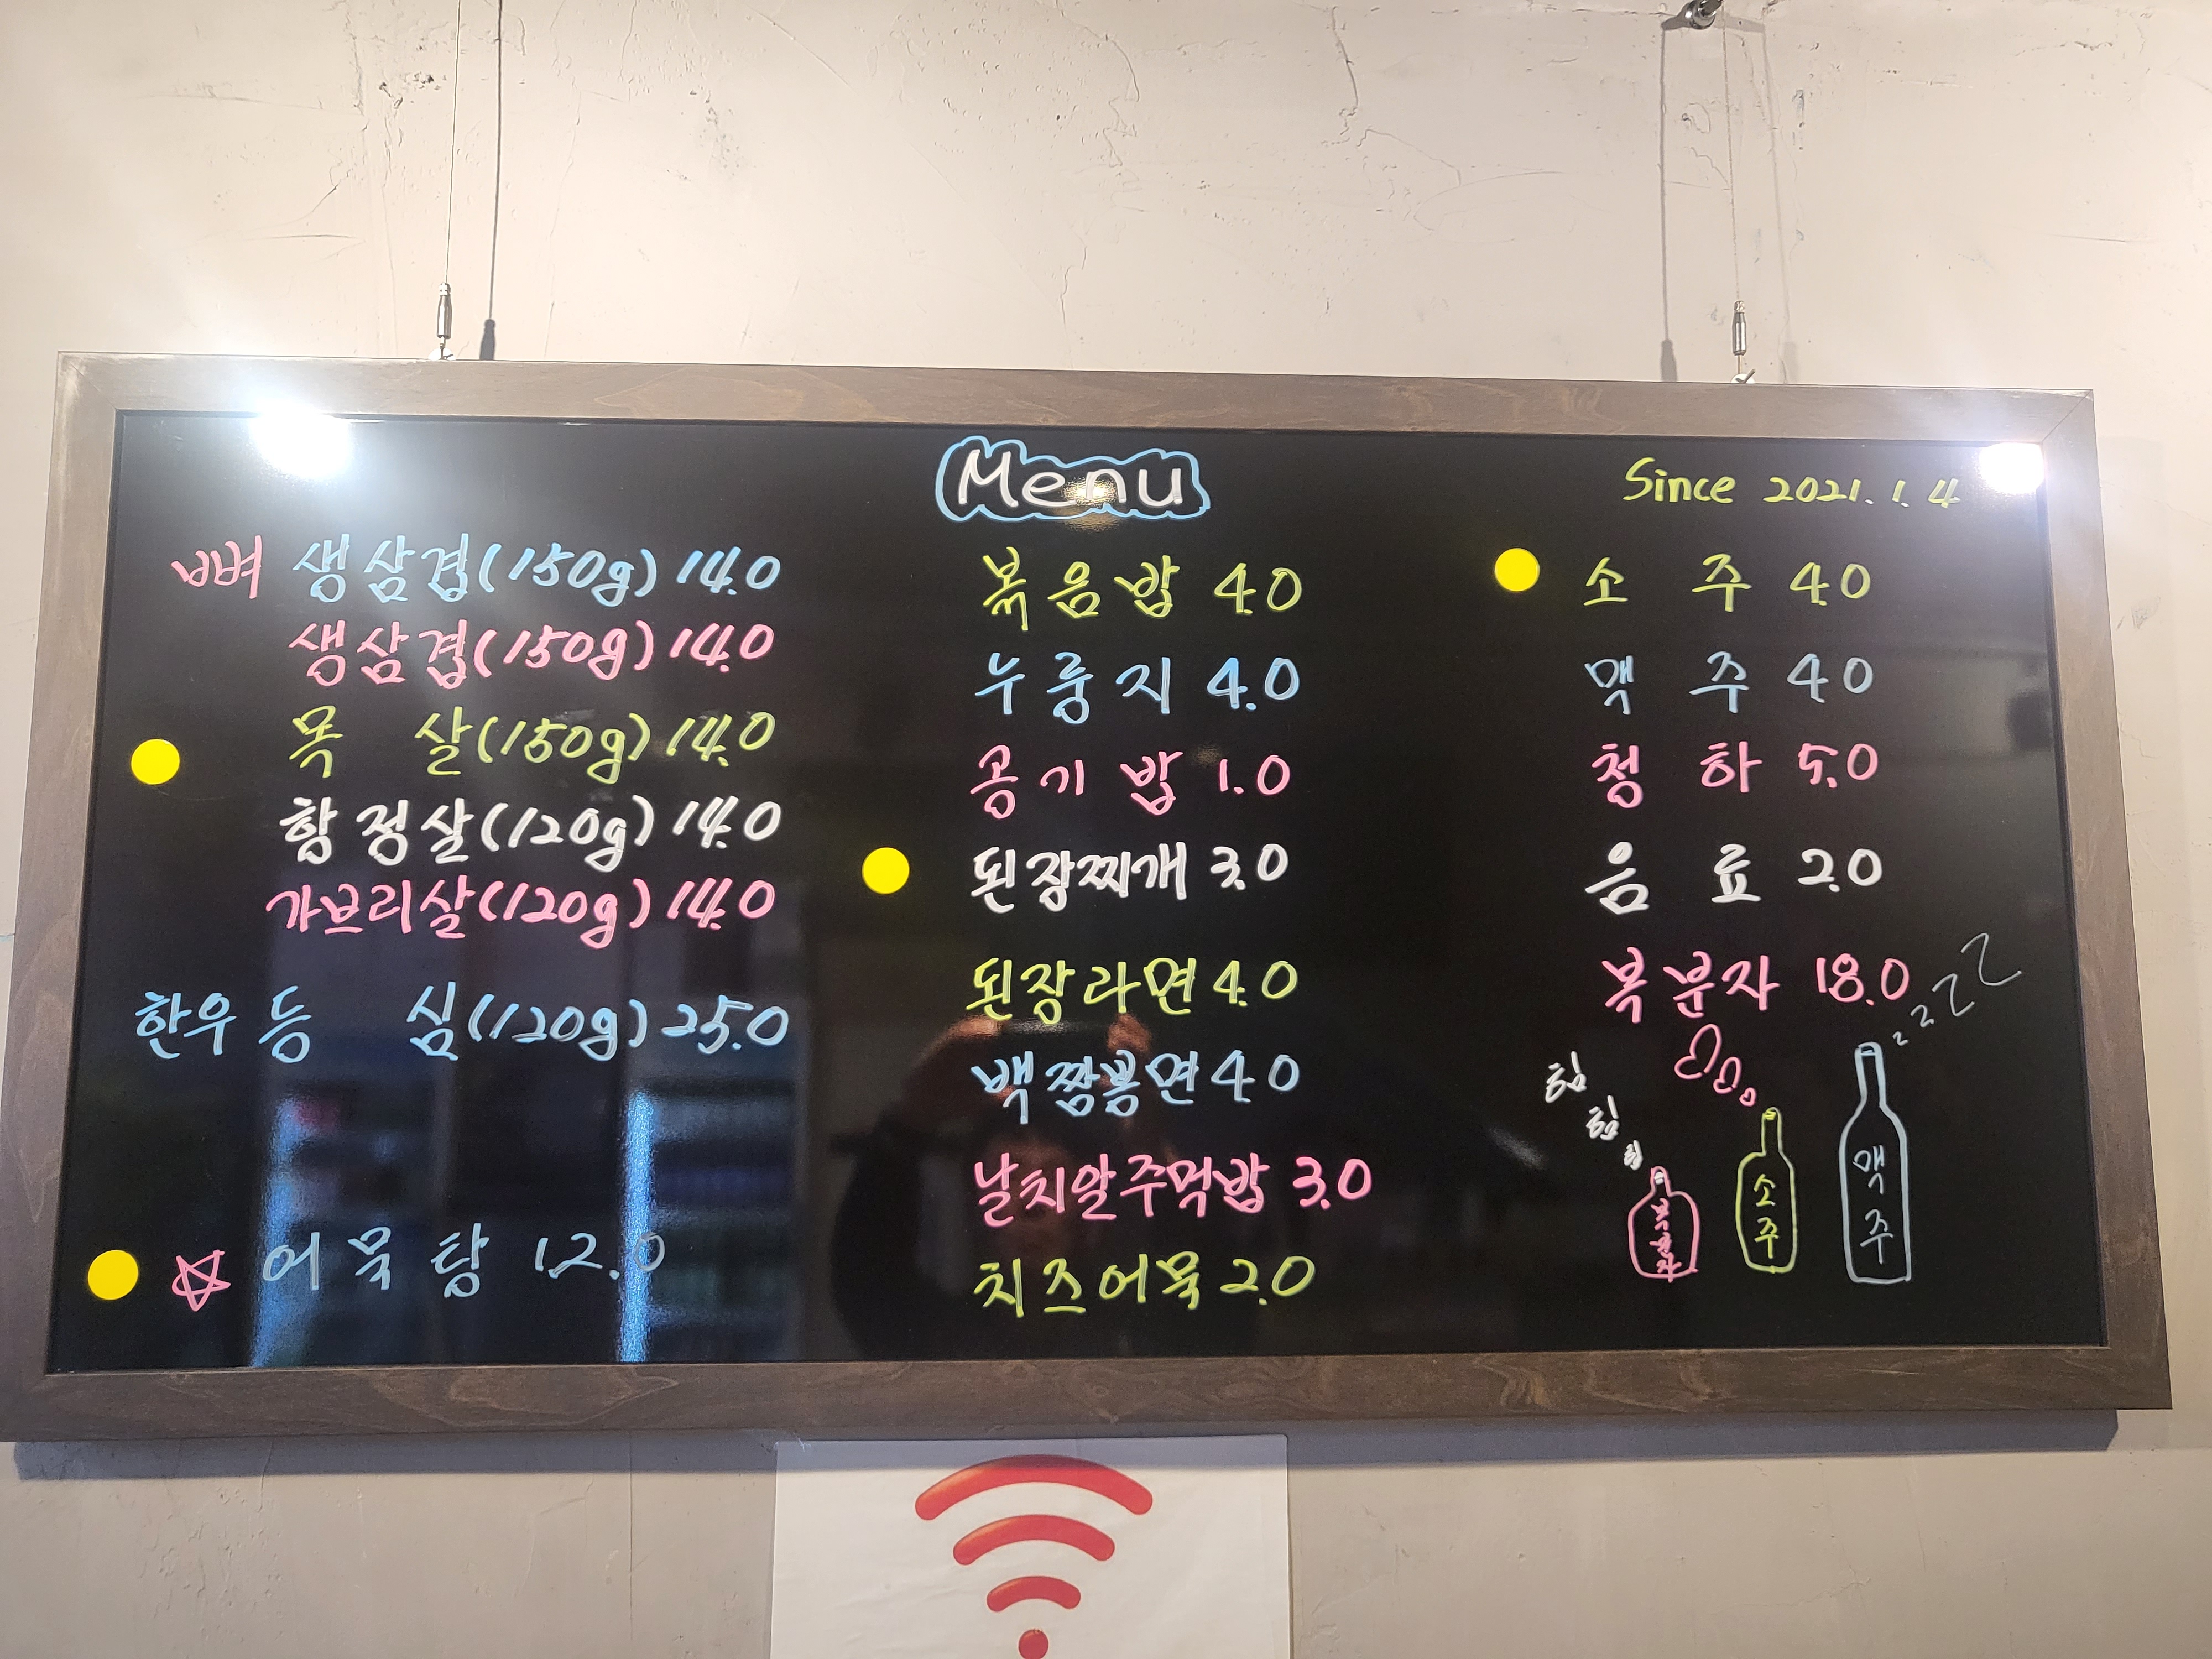 Menu
Since 2021.1.4
뼈 생삼겹(150g) 14.0
생삼겹(150g) 14.0
목 살(150g) 14.0
항정살(120g) 14.0
가브리살(120g) 14.0
한우 등 심(120g) 25.0
☆ 어묵탕 12.0
볶음밥 4.0
누룽지 4.0
공기밥 1.0
된장찌개 3.0
된장라면 4.0
백짬뽕면 4.0
날치알주먹밥 3.0
치즈어묵 2.0
소 주 4.0
맥 주 4.0
청 하 5.0
음 료 2.0
복분자 18.0
zzzz
힘
힘
힘
복분자
소주
맥주